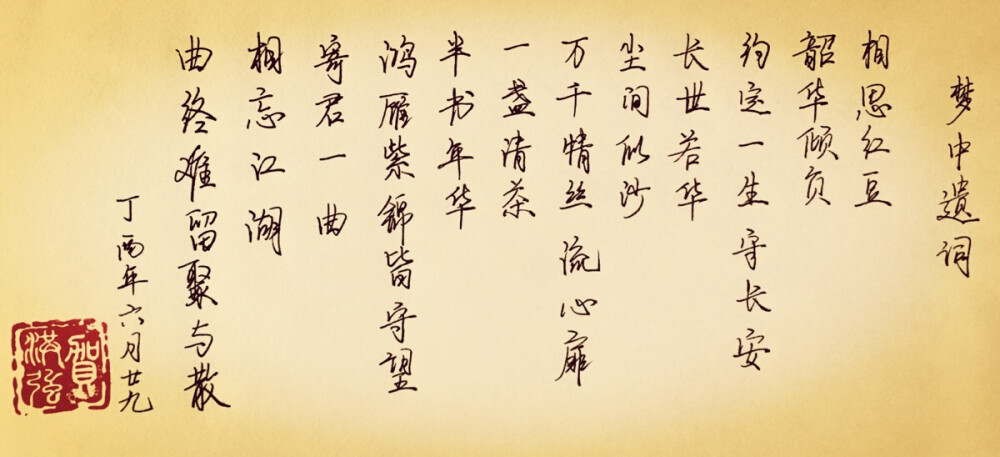 梦中遗词
相思红豆
韶华倾负
约定一生守长安
长世若华
尘间似沙
万千情丝流心扉
一盏清茶
半书年华
鸿雁紫锦皆守望
寄君一曲
相忘江湖
曲终难留聚与散
丁酉年六月廿九
贺洪强